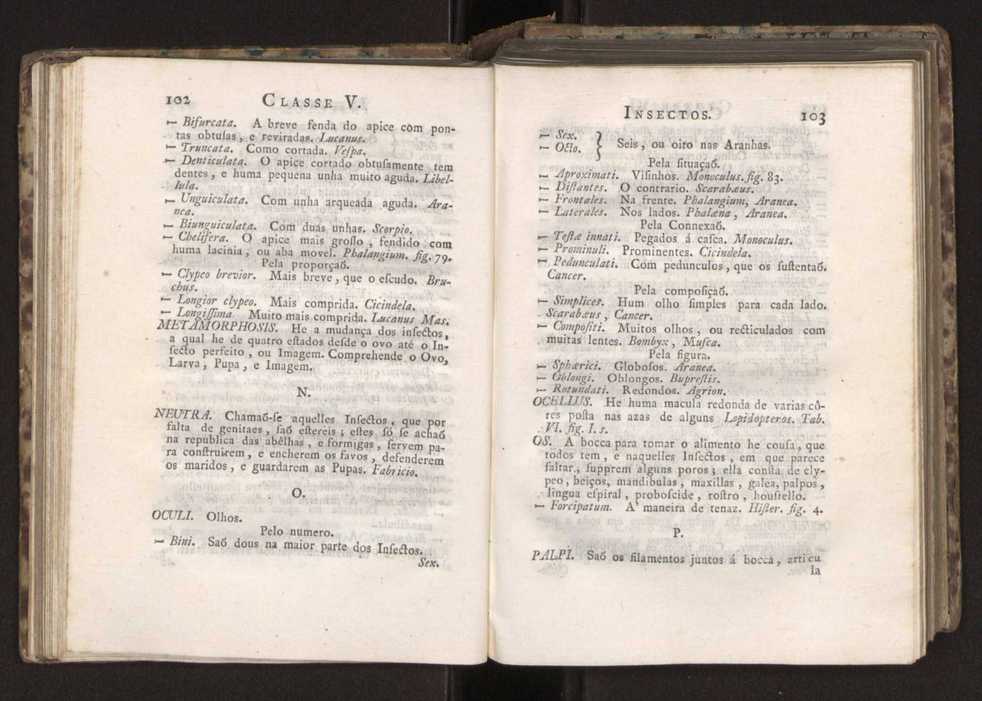 102 CLASSE V.
— Bifurcata. A breve fenda do apice com pon-
tas obtuſas, e reviradas. Lucanus.
— Truncata. Como cortada. Veſpa.
— Denticulata. O apice cortado obtuſamente tem
dentes, e huma pequena unha muito aguda. Libel-
lula.
— Unguiculata. Com unha arqueada aguda. Ara-
nea.
— Biunguiculata. Com duas unhas. Scorpio.
— Chelifera. O apice mais groſſo, fendido com
huma lacinia, ou aba movel. Phalangium. fig. 79.
Pela proporçaõ.
— Clypeo brevior. Mais breve, que o eſcudo. Bru-
chus.
— Longior clypeo. Mais comprida. Cicindela.
— Longiſſima. Muito mais comprida. Lucanus Mas.
METAMORPHOSIS. He a mudança dos inſectos,
a qual he de quatro eſtados deſde o ovo até o In-
ſecto perfeito, ou Imagem. Comprehende o Ovo,
Larva, Pupa, e Imagem.
N.
NEUTRA. Chamaõ-ſe aquelles Inſectos, que por
falta de genitaes, ſaõ eſtereis; eſtes ſó ſe achaõ
na republica das abêlhas, e formigas, ſervem pa-
ra conſtruirem, e encherem os favos, defenderem
os maridos, e guardarem as Pupas. Fabricio.
O.
OCULI. Olhos.
Pelo numero.
— Bini. Saõ dous na maior parte dos Inſectos.
Sex.
INSECTOS. 103
— Sex. } Seis, ou oito nas Aranhas.
— Octo.
Pela ſituaçaõ.
— Aproximati. Viſinhos. Monoculus. fig. 83.
— Diſtantes. O contrario. Scarabæus.
— Frontales. Na frente. Phalangium, Aranea.
— Laterales. Nos lados. Phalæna, Aranea.
Pela Connexaõ.
— Teſtæ innati. Pegados á caſca. Monoculus.
— Prominuli. Prominentes. Cicindela.
— Pedunculati. Com pedunculos, que os ſuſtentaõ.
Cancer.
Pela compoſiçaõ.
— Simplices. Hum olho ſimples para cada lado.
Scarabæus, Cancer.
— Compoſiti. Muitos olhos, ou recticulados com
muitas lentes. Bombyx, Muſca.
Pela figura.
— Sphærici. Globoſos. Aranea.
— Oblongi. Oblongos. Bupreſtis.
— Rotundati. Redondos. Agrion.
OCELLUS. He huma macula redonda de varias cô-
res poſta nas azas de alguns Lopidopteros. Tab.
VI. fig. I. s.
OS. A bocca para tomar o alimento he couſa, que
todos tem, e naquelles Inſectos, em que parece
faltar, ſupprem alguns poros; ella conſta de cly-
peo, beiços, mandibulas, maxillas, galea, palpos,
lingua eſpiral, proboſcide, roſtro, houſtello.
— Forcipatum. A' maneira de tenaz. Hiſter. fig. 4.
P.
PALPI. Saõ os filamentos juntos á bocca, articu
la